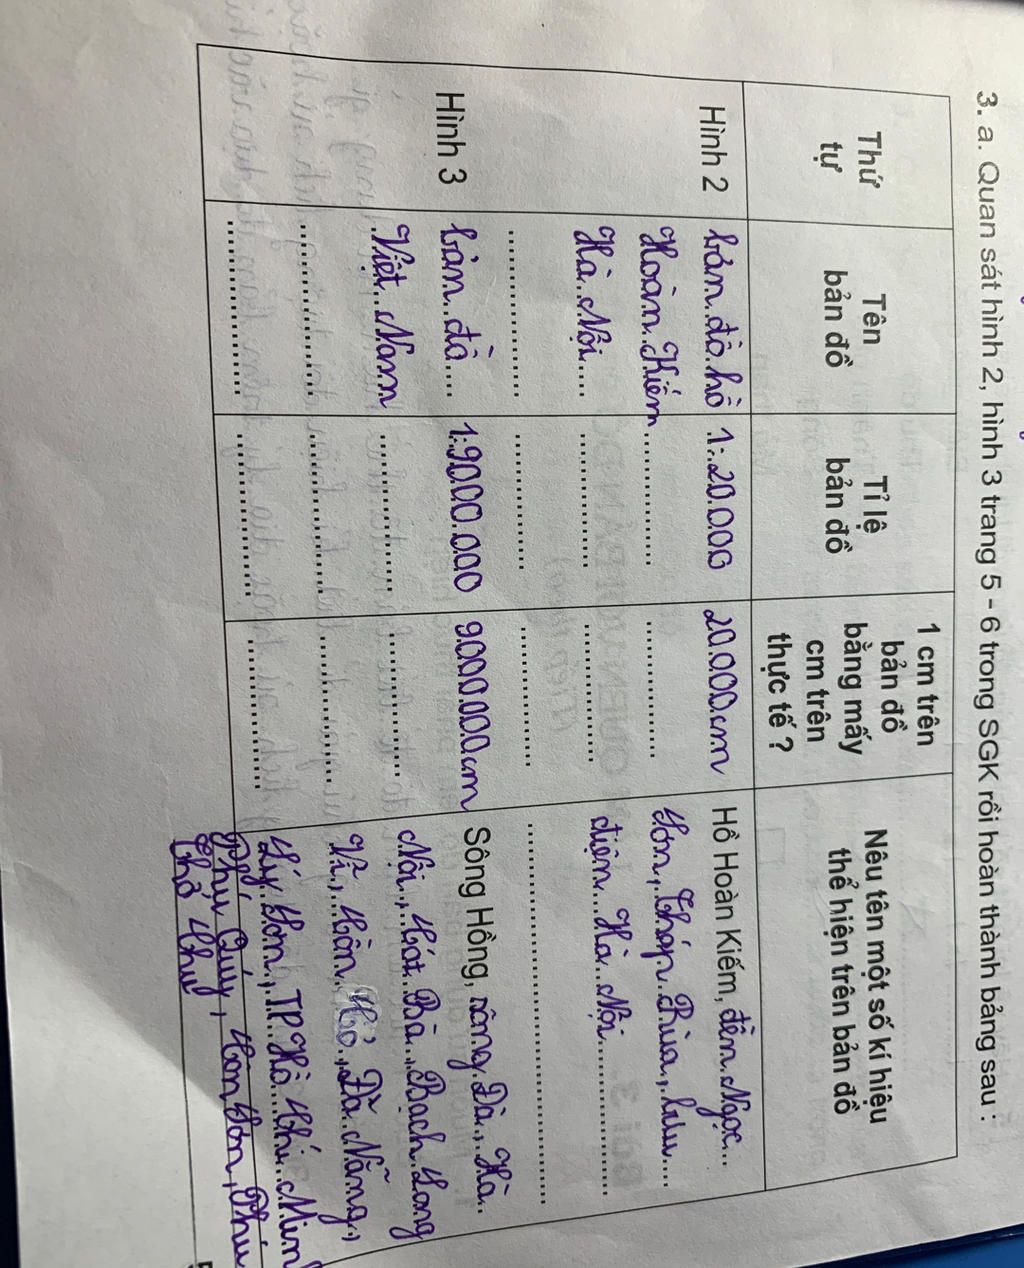 3. a. Quan sát hình 2, hình 3 trang 5 - 6 trong SGK rồi hoàn thành bảng sau :
Thứ
tự
Tên
bản đồ
Tỉ lệ
bản đồ
1 cm trên
bản đồ
bằng mấy
cm trên
thực tế ?
Nêu tên một số kí hiệu
thể hiện trên bản đồ
Hình 2
bản đồ hồ
Hoàn Kiếm
Hà Nội
1:20.000
20.000cm
Hồ Hoàn Kiếm, đền Ngọc
Sơn, Tháp Rùa, bưu
điện Hà Nội
Hình 3
bản đồ
Việt Nam
1:9000.000
9.000.000cm
Sông Hồng, sông Đà, Hà
Nội, Cát Bà, Bạch Long
Vĩ, Cồn Cỏ, Đà Nẵng,
Lý Sơn, TP Hồ Chí Minh
Phú Quý, Côn Sơn, Phú
Thổ Chu